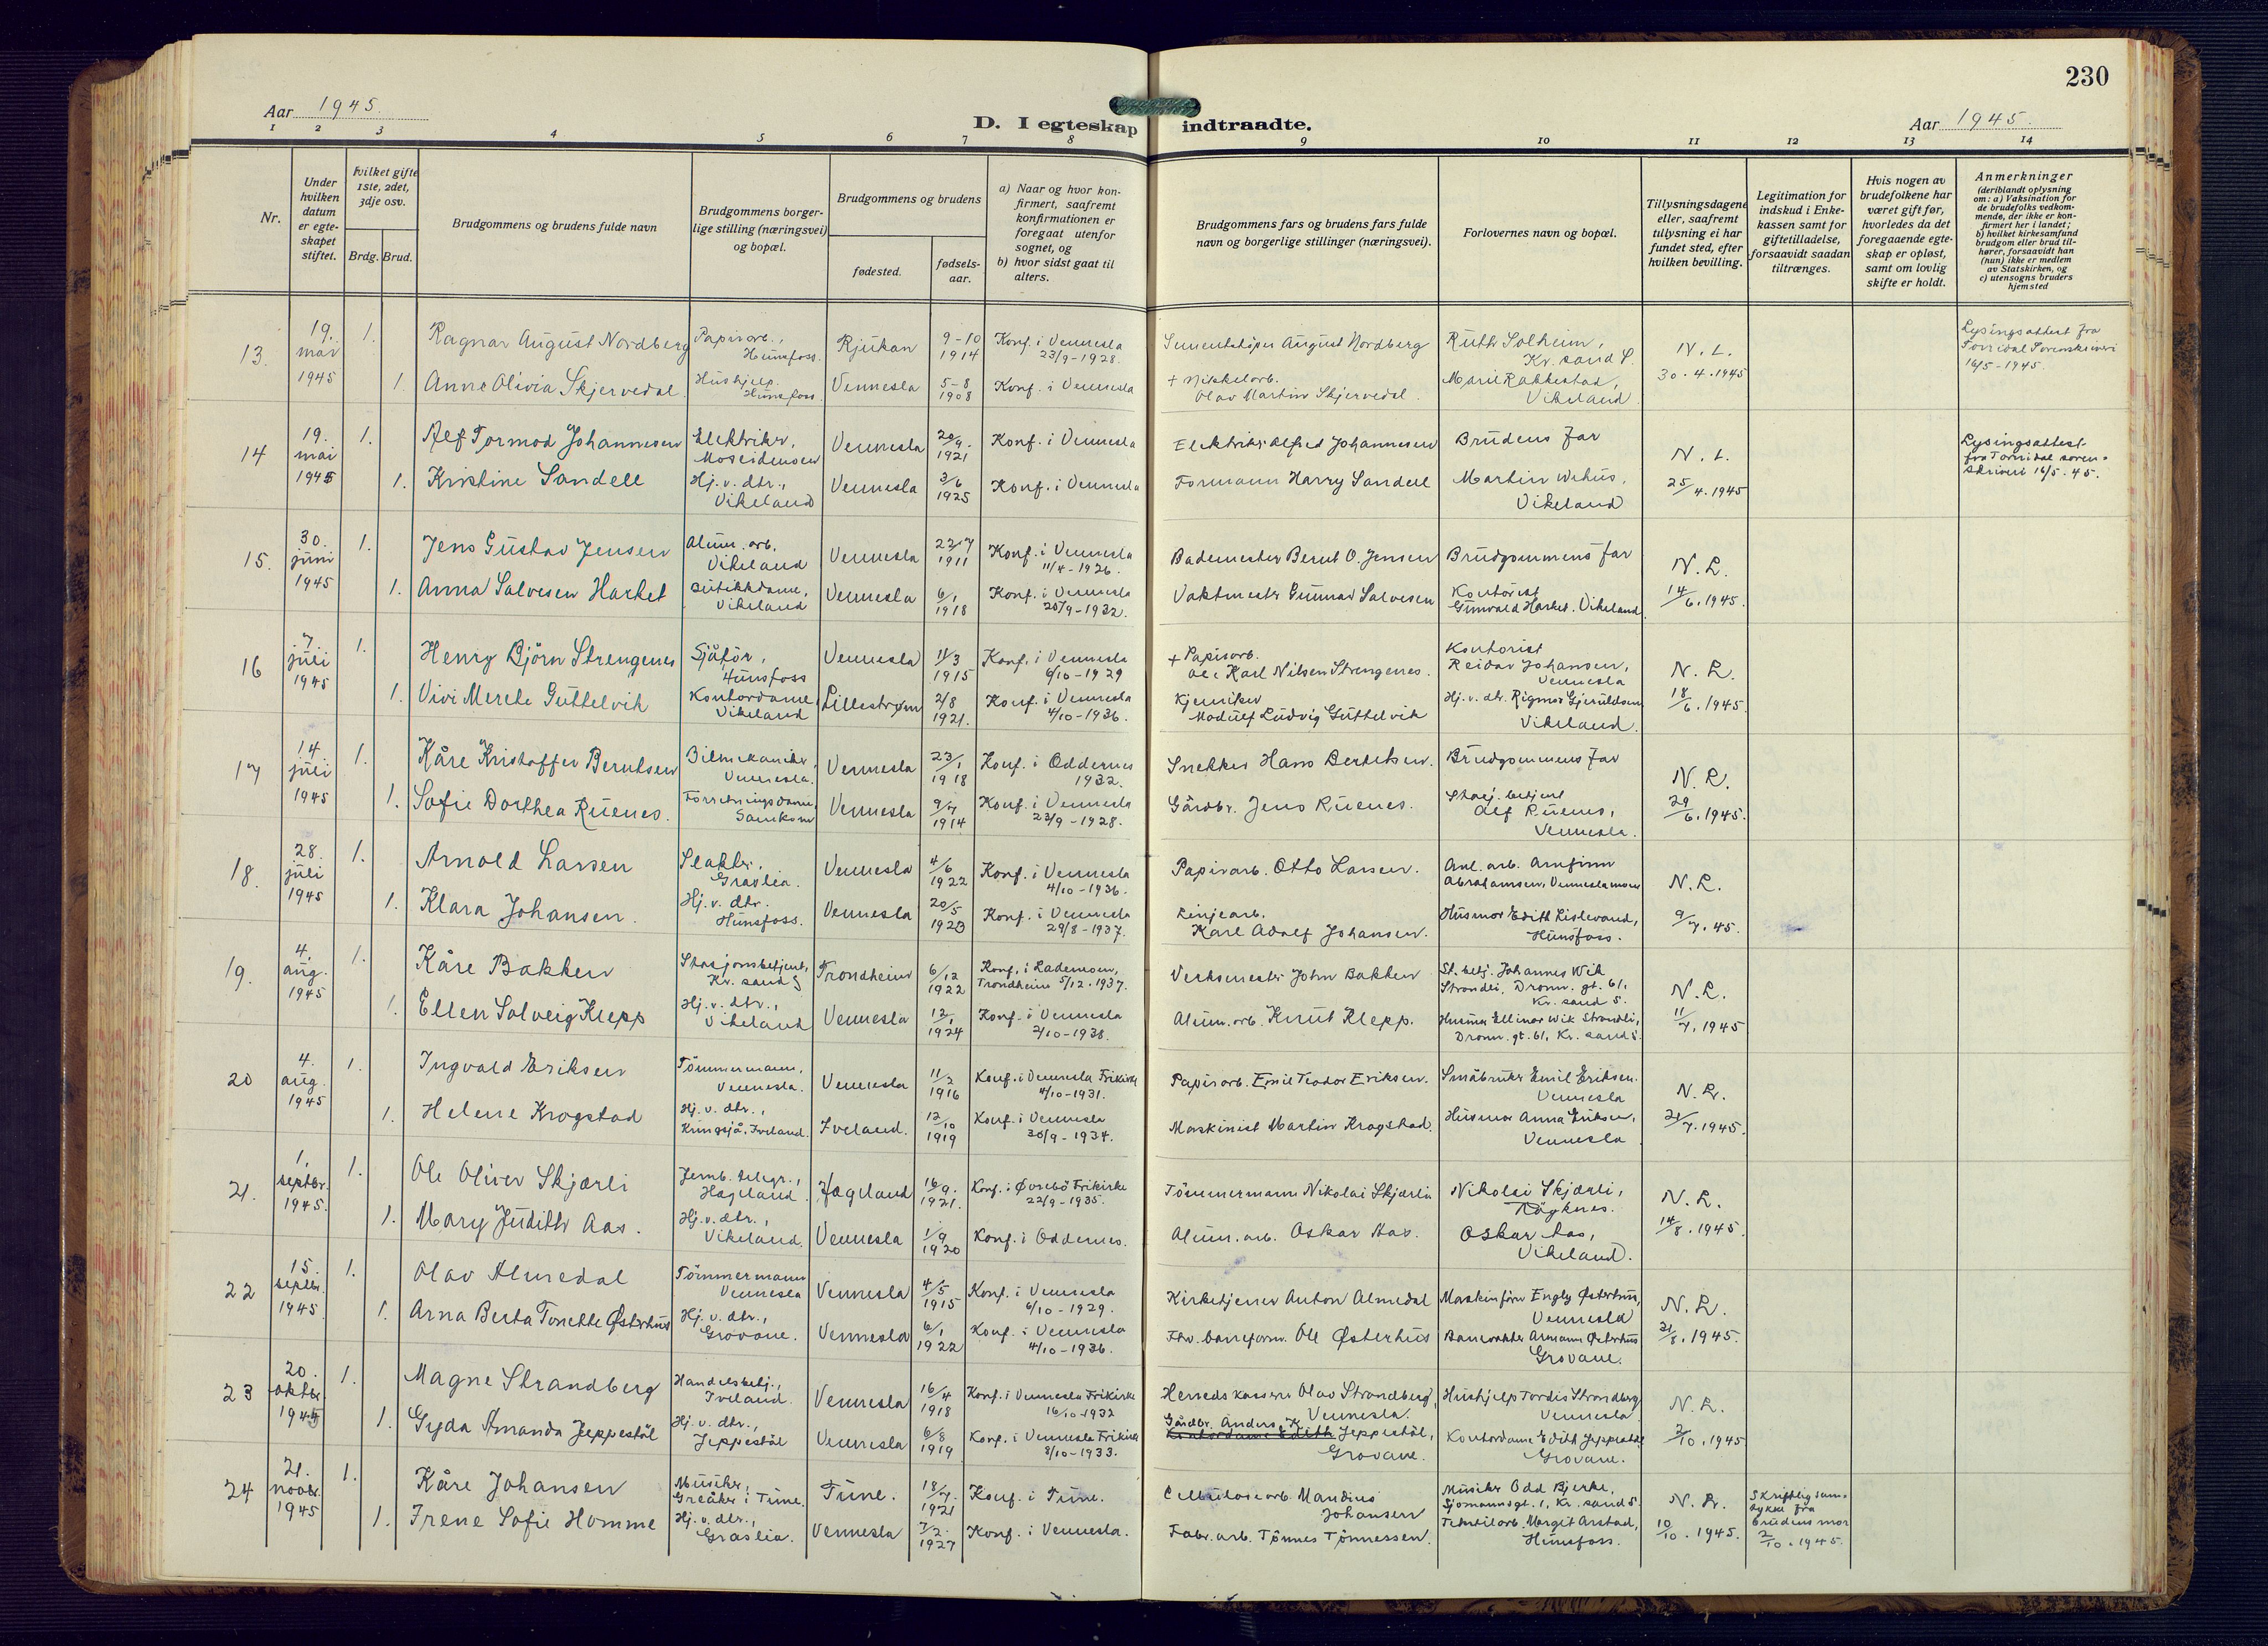 230
Aar 1945.
D. I egteskap indtraadte.
Aar 1945.
1 2 3 4 5 6 7 8 9 10 11 12 13 14
Nr.
Under hvilken datum er egteskapet stiftet.
Hvilket gifte 1ste, 2det, 3dje osv.
Brdg. Brud.
Brudgommens og brudens fulde navn
Brudgommens borgerlige stilling (næringsvei) og bopæl.
Brudgommens og brudens
fødested.
fødselsaar.
a) Naar og hvor konfirmert, saafremt konfirmationen er foregaat utenfor sognet, og
b) hvor sidst gaat til alters.
Brudgommens fars og brudens fars fulde navn og borgerlige stillinger (næringsvei).
Forlovernes navn og bopæl.
Tillysningsdagene eller, saafremt tillysning ei har fundet sted, efter hvilken bevilling.
Legitimation for indskud i Enkekassen samt for giftetilladelse, forsaavidt saadan tiltrænges.
Hvis nogen av brudefolkene har været gift før, hvorledes da det foregaaende egteskap er opløst, samt om lovlig skifte er holdt.
Anmerkninger
(deriblandt oplysning om: a) Vaksination for de brudefolks vedkommende, der ikke er konfirmert her i landet;
b) hvilket kirkesamfund brudgom eller brud tilhører, forsaavidt han (hun) ikke er medlem av Statskirken, og
c) utensogns bruders hjemsted
13. 19. mai 1945 1. Ragnar August Nordberg Papirarb., Hunsfoss. Rjukan 9-10 1914 Konf. i Vennesla 23/9-1928. August Nordberg Ruth Solheim, Kr. sand S. N. L. 30.4.1945 Lysingsattest fra Torridal Sorenskriveri 16/5-1945.
1. Anne Olivia Skjervedal. Hushjelp. Hunsfoss. Vennesla 5-8 1908 Konf. i Vennesla + Nikkelarb. Olav Martin Skjervedal. Marie Rakkestad, Vikeland
14 19. mai 1945 1. Alf Tormod Johannesen Elektriker, Moseidmoen Vennesla 20/9. 1921 Konf. i Vennesla Elektriker Alfred Johannesen Brudens far N. L. 25/4.1945 Lysingsattest fra Torridal sorenskriveri 16/5.45.
1. Kristine Sandell Hj. v. dtr., Vikeland Vennesla 3/6 1925 Konf. i Vennesla Formann Harry Sandell Martin Wehus, Vikeland
15. 30. juni 1945 1. Jens Gustav Jensen Alum. arb. Vikeland Vennesla 22/7 1911 Konf. i Vennesla 11/4-1926. Bademester Bernt O. Jensen Brudgommens far N. L. 14/6.1945.
1. Anna Salvesen Harket Butikkdame, Vikeland Vennesla 6/1 1918 Konf. i Vennesla 20/9-1932. Vaktmester Gunnar Salvesen Kontorist Gunvald Harket. Vikeland
16 7. juli 1945 1. Henry Björn Strengenes Sjåför, Hunsfoss Vennesla 11/3 1915 Konf. i Vennesla 6/10-1929 + Papirarb. Karl Nilsen Strengenes. Kontorist Reidar Johansen, Vennesla N. L. 18/6.1945.
1. Vivi Merete Guttelvik Kontordame, Vikeland Lillestrøm 2/8 1921. Konf. i Vennesla 4/10-1936. Kjemiker Modulf Ludvig Guttelvik Hj. v. dtr. Rigmor Gjeruldsen Vikeland.
17 14. juli 1945 1. Kåre Kristoffer Berntsen Bilmekaniker, Vennesla. Vennesla 23/1 1918 Konf. i Oddernes 1932. Snekker Hans Berntsen. Brudgommens far N. L. 29/6.1945.
1. Sofie Dorthea Ruenes. Forretningsdame, Samkom Vennesla 9/7 1914 Konf. i Vennesla 23/9-1928. Gårdbr. Jens Ruenes. Stasj. betjent Alf Ruenes, Vennesla.
18. 28. juli 1945 1. Arnold Larsen Slakter. Graslia. Vennesla 4/6 1922 Konf. i Vennesla 4/10-1936. Papirarb. Otto Larsen. Anl. arb. Arnfinn Abrahamsen, Venneslamoen N. L. 9/7.45.
1. Klara Johansen. Hj. v. dtr. Hunsfoss. Vennesla 20/5 1923 Konf. i Vennesla 29/8-1937. Linjearb. Karl Adolf Johansen. Husmor Edith Lislevand, Hunsfoss.
19. 4. aug. 1945 1. Kåre Bakken Stasjonsbetjent, Kr. sand S Trondheim 6/12 1922 Konf. i Lademoen, Trondheim 5/12.1937. Verksmester John Bakken St. betj. Johannes Wik Strandli, Dronn. gt. 61, Kr. sand S. N. L. 11/7.1945
1. Ellen Solveig Klepp Hj. v. dtr., Vikeland Vennesla 12/1 1924 Konf. i Vennesla 2/10-1938. Alum. arb. Knut Klepp. Husmor Ellinor Wik Strandli, Dronn. gt. 61, Kr. sand S.
20 4. aug. 1945 1. Ingvald Eriksen Tömmermann, Vennesla. Vennesla 11/2 1916 Konf. i Vennesla Frikirke 4/10-1931. Papirarb. Emil Teodor Eriksen. Småbruker Emil Eriksen. Vennesla N. L. 21/7.1945.
1. Helene Krogstad Hj. v. dtr., Kringsjå, Iveland. Iveland. 12/10 1919 Konf. i Vennesla 30/9-1934. Maskinist Martin Krogstad. Husmor Anna Eriksen, Vennesla
21. 1. septbr. 1945. 1. Ole Oliver Skjærli Jernb. telegr., Hægeland. Hægeland 16/9. 1921. Konf. i Øvrebö Frikirke 22/9-1935. Tömmermann Nikolai Skjærli Nikolai Skjærli, N. L. 14/8.1945
1. Mary Judith Aas. Hj. v. dtr., Vikeland. Vennesla 1/9 1920 Konf. i Oddernes. Alum. arb. Oskar Aas. Oskar Aas, Vikeland.
22 15. septbr. 1945. 1. Olav Almedal Tömmermann Vennesla Vennesla 4/5 1915 Konf. i Vennesla 6/10-1929. Kirketjener Anton Almedal Maskinförer Engly Østerhus, Vennesla N. L. 21/8.1945.
1. Arna Berta Tonette Østerhus Hj. v. dtr., Grovane. Vennesla 6/1 1922 Konf. i Vennesla 4/10-1936. Fhv. baneform. Ole Østerhus Banevokter Armann Østerhus Grovane.
23 20. oktbr. 1945 1. Magne Strandberg Handelsbetj., Iveland. Vennesla 16/4 1918 Konf. i Vennesla Frikirke 16/10-1932 Herredskasserer Olav Strandberg, Vennesla. Hushjelp Tordis Strandberg Vennesla N. L. 2/10.1945
1. Gyda Amanda Jeppestöl Hj. v. dtr., Jeppestöl Vennesla 6/8 1919 Konf. i Vennesla Frikirke 8/10-1933. Gårdbr. Anders K. Kontordame Edith Jeppestöl, Grovane. Kontordame Edith Jeppestöl Grovane.
24 21. novbr. 1945 1. Kåre Johansen Musiker, Greåker i Tune. Tune. 18/7. 1921 Konf. i Tune. Cellulosearb. Mandius Johansen Musiker Odd Bjerke, Sjömannsgt. 1, Kr. sand S. N. L. 10/10.1945. Skriftlig samtykke fra brudens mor 2/10.1945.
1. Irene Sofie Homme Hj. v. dtr., Graslia. Vennesla 7/2. 1927 Konf. i Vennesla. Fabr. arb. Tönnes Tönnessen. Tekstilarb. Margit Arstad, Hunsfoss.